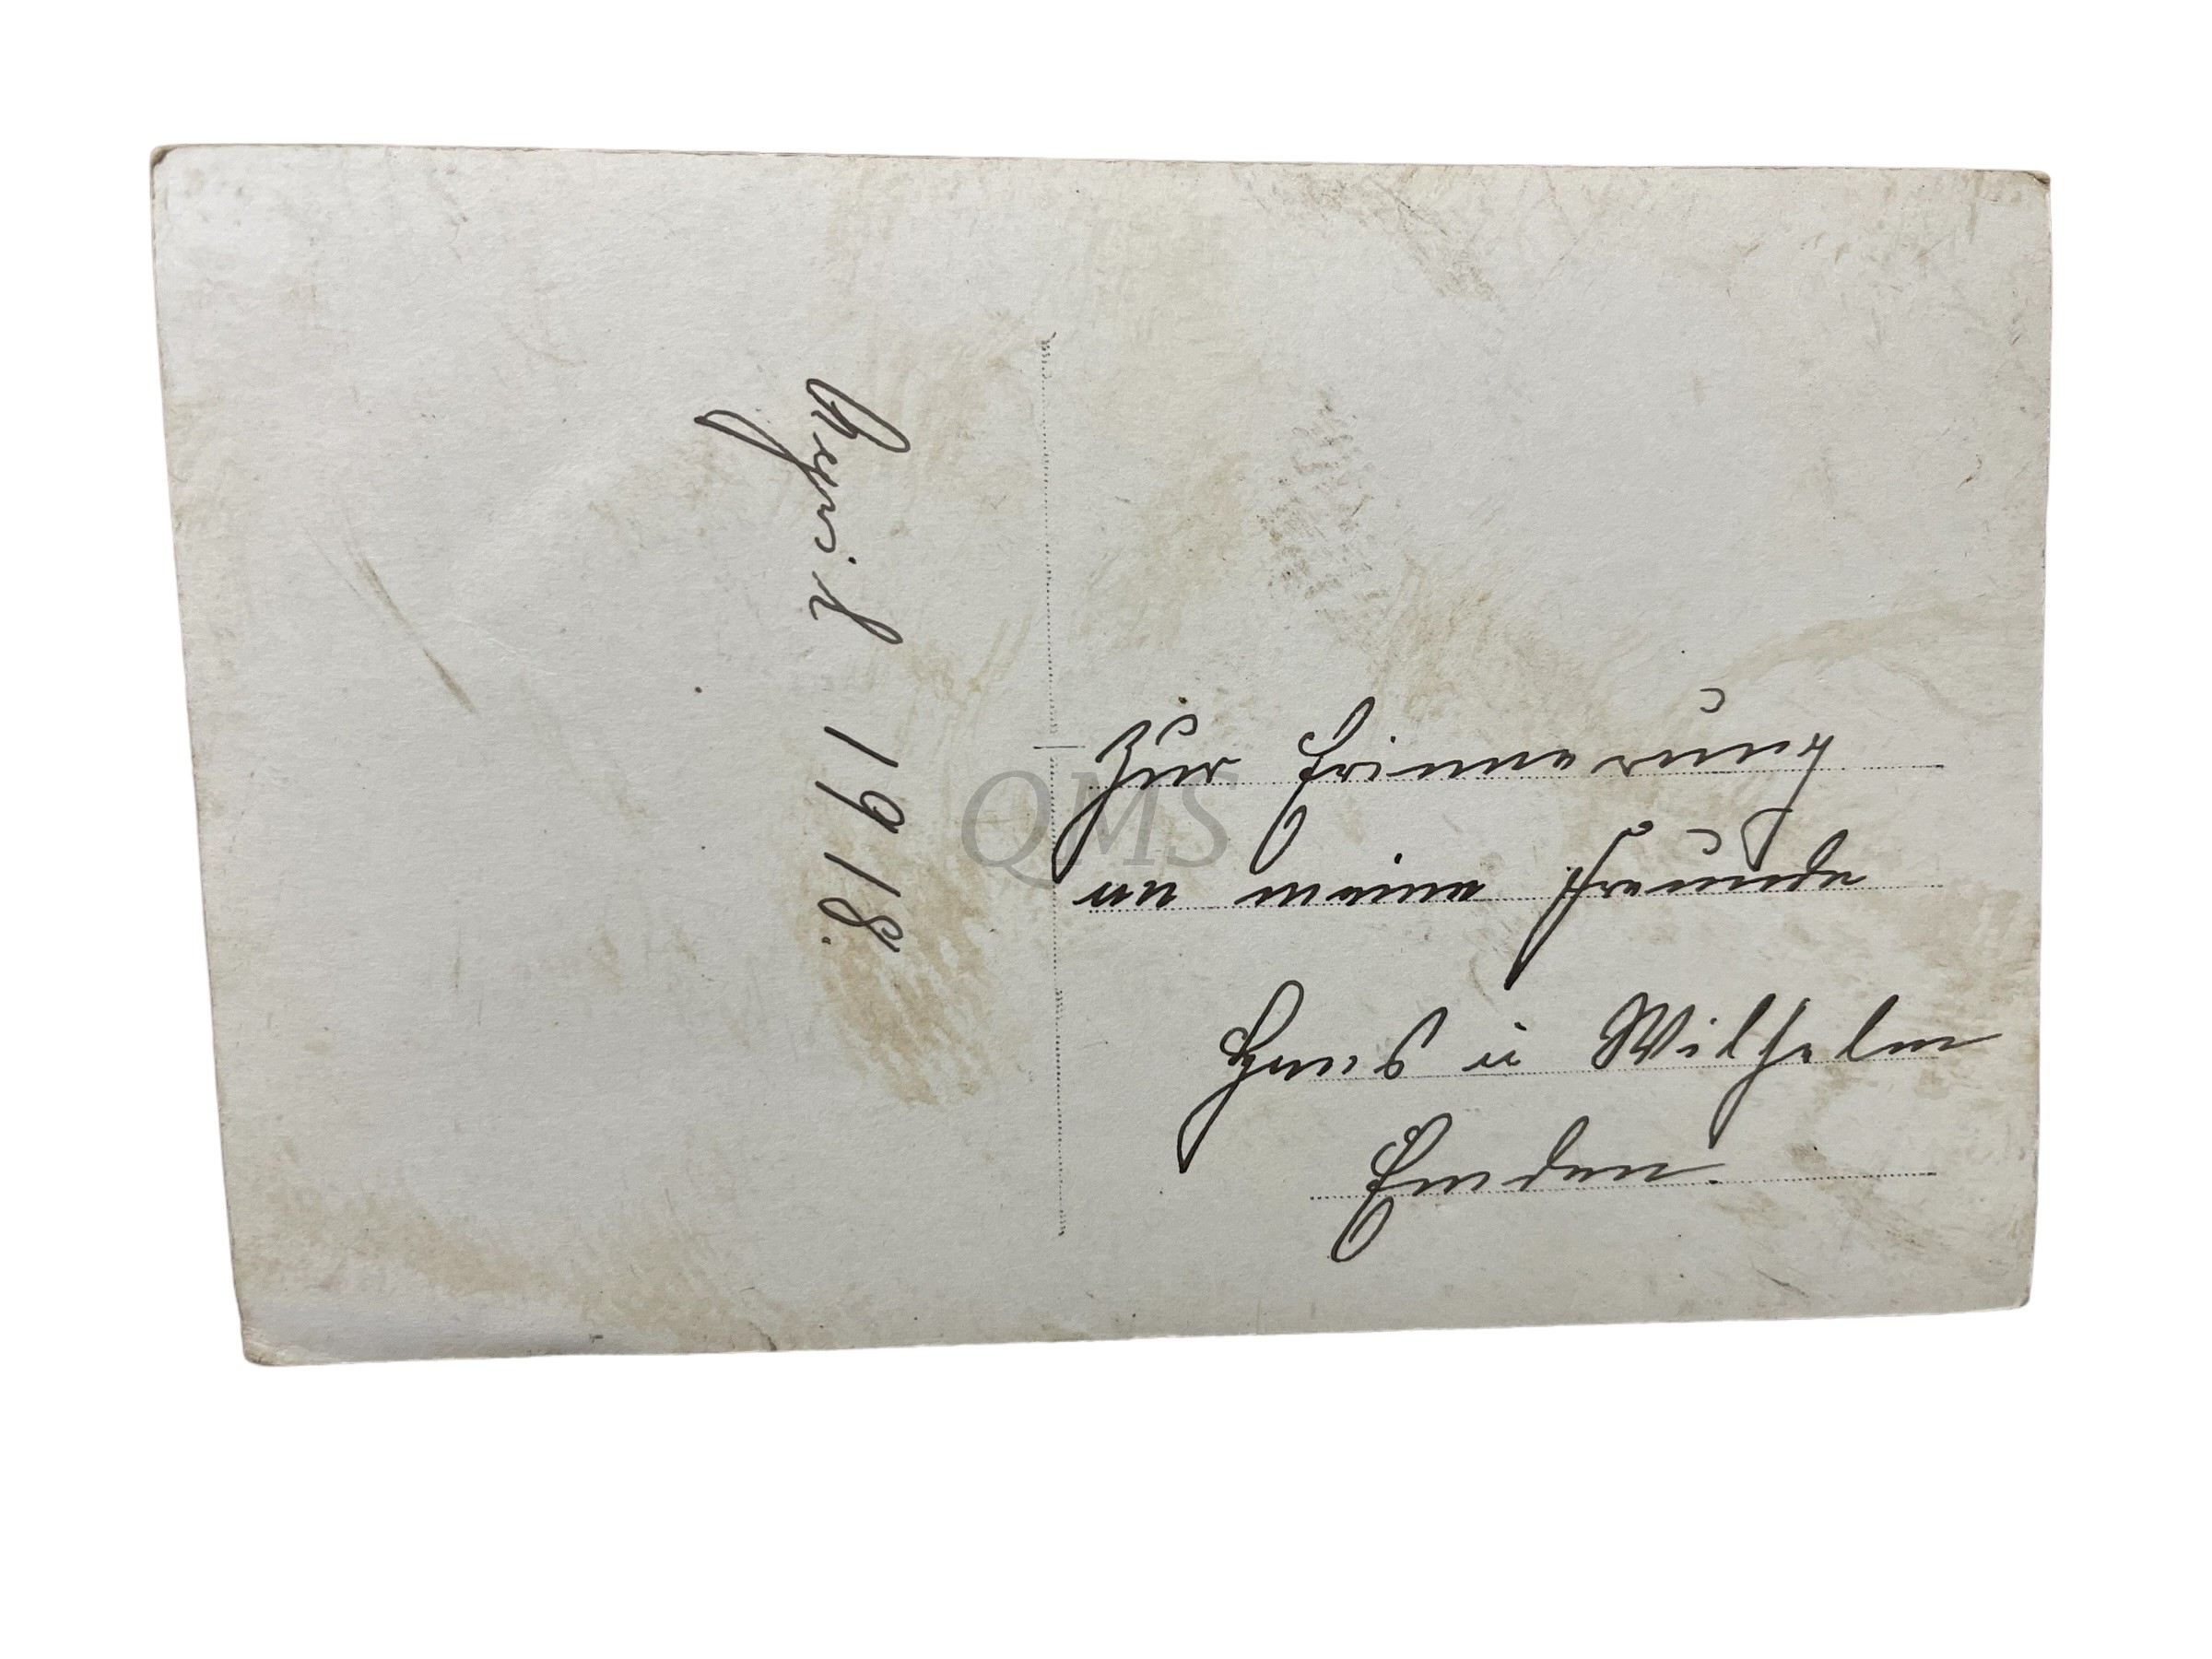 Zur Erinnerung
an meine Freunde
Hans u Wilhelm
Emden.
April 1918.
QMS